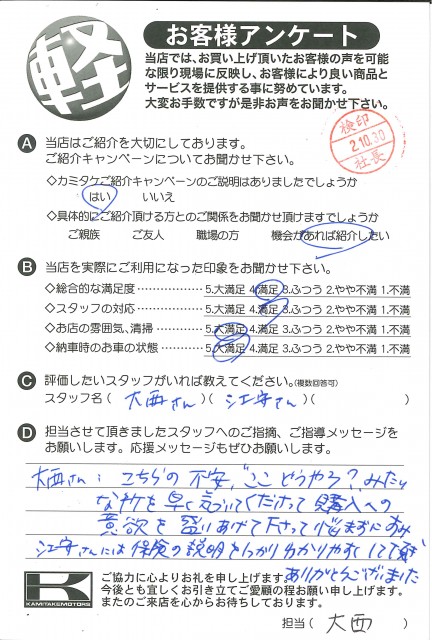 軽
お客様アンケート
当店では、お買い上げ頂いたお客様の声を可能
な限り現場に反映し、お客様により良い商品と
サービスを提供する事に努めています。
大変お手数ですが是非お声をお聞かせ下さい。
検印
2.10.30
社長
A 当店はご紹介を大切にしております。
ご紹介キャンペーンについてお聞かせ下さい。
◇カミタケご紹介キャンペーンのご説明はありましたでしょうか
はい いいえ
◇具体的にご紹介頂ける方とのご関係をお聞かせ頂けますでしょうか
ご親族 ご友人 職場の方 機会があれば紹介したい
B 当店を実際にご利用になった印象をお聞かせ下さい。
◇総合的な満足度 ……………… 5.大満足 4.満足 3.ふつう 2.やや不満 1.不満
◇スタッフの対応 ……………… 5.大満足 4.満足 3.ふつう 2.やや不満 1.不満
◇お店の雰囲気、清掃 ………… 5.大満足 4.満足 3.ふつう 2.やや不満 1.不満
◇納車時のお車の状態 ………… 5.大満足 4.満足 3.ふつう 2.やや不満 1.不満
C 評価したいスタッフがいれば教えてください。(複数回答可)
スタッフ名 ( 大西さん )( 江守さん )( )
D 担当させて頂きましたスタッフへのご指摘、ご指導メッセージを
お願いします。応援メッセージもぜひお願いします。
大西さん: こちらの不安、"ここどうやろ?"みたい
な所を早く気づいてくださって購入への
意欲を盛りあげて下さって悩まずにすみ
江守さんには保険の説明をしっかりわかりやすくして頂き
ありがとうございました
ご協力に心よりお礼を申し上げます。
今後とも宜しくお引き立てご愛顧の程お願い申し上げます。
またのご来店を心からお待ちしております。
KAMITAKEMOTORS
担当 ( 大西 )